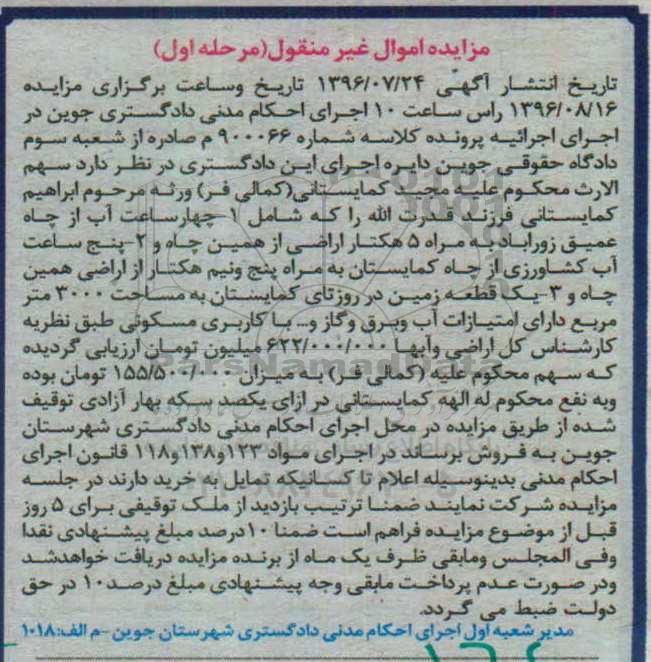 مزایده اموال غیر منقول(مرحله اول)
تاریخ انتشار آگهی ۱۳۹۶/۰۷/۲۴ تاریخ وساعت برگزاری مزایده
۱۳۹۶/۰۸/۱۶ راس ساعت ۱۰ اجرای احکام مدنی دادگستری جوین در
اجرای اجرائیه پرونده کلاسه شماره ۹۰۰۰۶۶ م صادره از شعبه سوم
دادگاه حقوقی جوین دایره اجرای این دادگستری در نظر دارد سهم
الارث محکوم علیه مجید کمایستانی(کمالی فر) ورثه مرحوم ابراهیم
کمایستانی فرزند قدرت الله را که شامل ۱-چهارساعت آب از چاه
عمیق زورآباد به مراه ۵ هکتار اراضی از همین چاه و ۲-پنج ساعت
آب کشاورزی از چاه کمایستان به مراه پنج ونیم هکتار از اراضی همین
چاه و ۳-یک قطعه زمین در روزتای کمایستان به مساحت ۳۰۰۰ متر
مربع دارای امتیازات آب وبرق وگاز و... با کاربری مسکونی طبق نظریه
کارشناس کل اراضی وآبها ۶۲۲/۰۰۰/۰۱۰ میلیون تومان ارزیابی گردیده
که سهم محکوم علیه (کمالی فر) به میزان ۱۵۵/۵۰۰/۰۰۰ تومان بوده
وبه نفع محکوم له الهه کمایستانی در ازای یکصد سکه بهار آزادی توقیف
شده از طریق مزایده در محل اجرای احکام مدنی دادگستری شهرستان
جوین به فروش برساند در اجرای مواد ۱۲۲و۱۳۸و۱۱۸ قانون اجرای
احکام مدنی بدینوسیله اعلام تا کسانیکه تمایل به خرید دارند در جلسه
مزایده شرکت نمایند ضمنا ترتیب بازدید از ملک توقیفی برای ۵ روز
قبل از موضوع مزایده فراهم است ضمنا ۱۰درصد مبلغ پیشنهادی نقدا
وفی المجلس ومابقی ظرف یک ماه از برنده مزایده دریافت خواهدشد
ودر صورت عدم پرداخت مابقی وجه پیشنهادی مبلغ درصد۱۰ در حق
دولت ضبط می گردد.
مدیر شعبه اول اجرای احکام مدنی دادگستری شهرستان جوین -م الف:۱۰۱۸
ParsNamadData